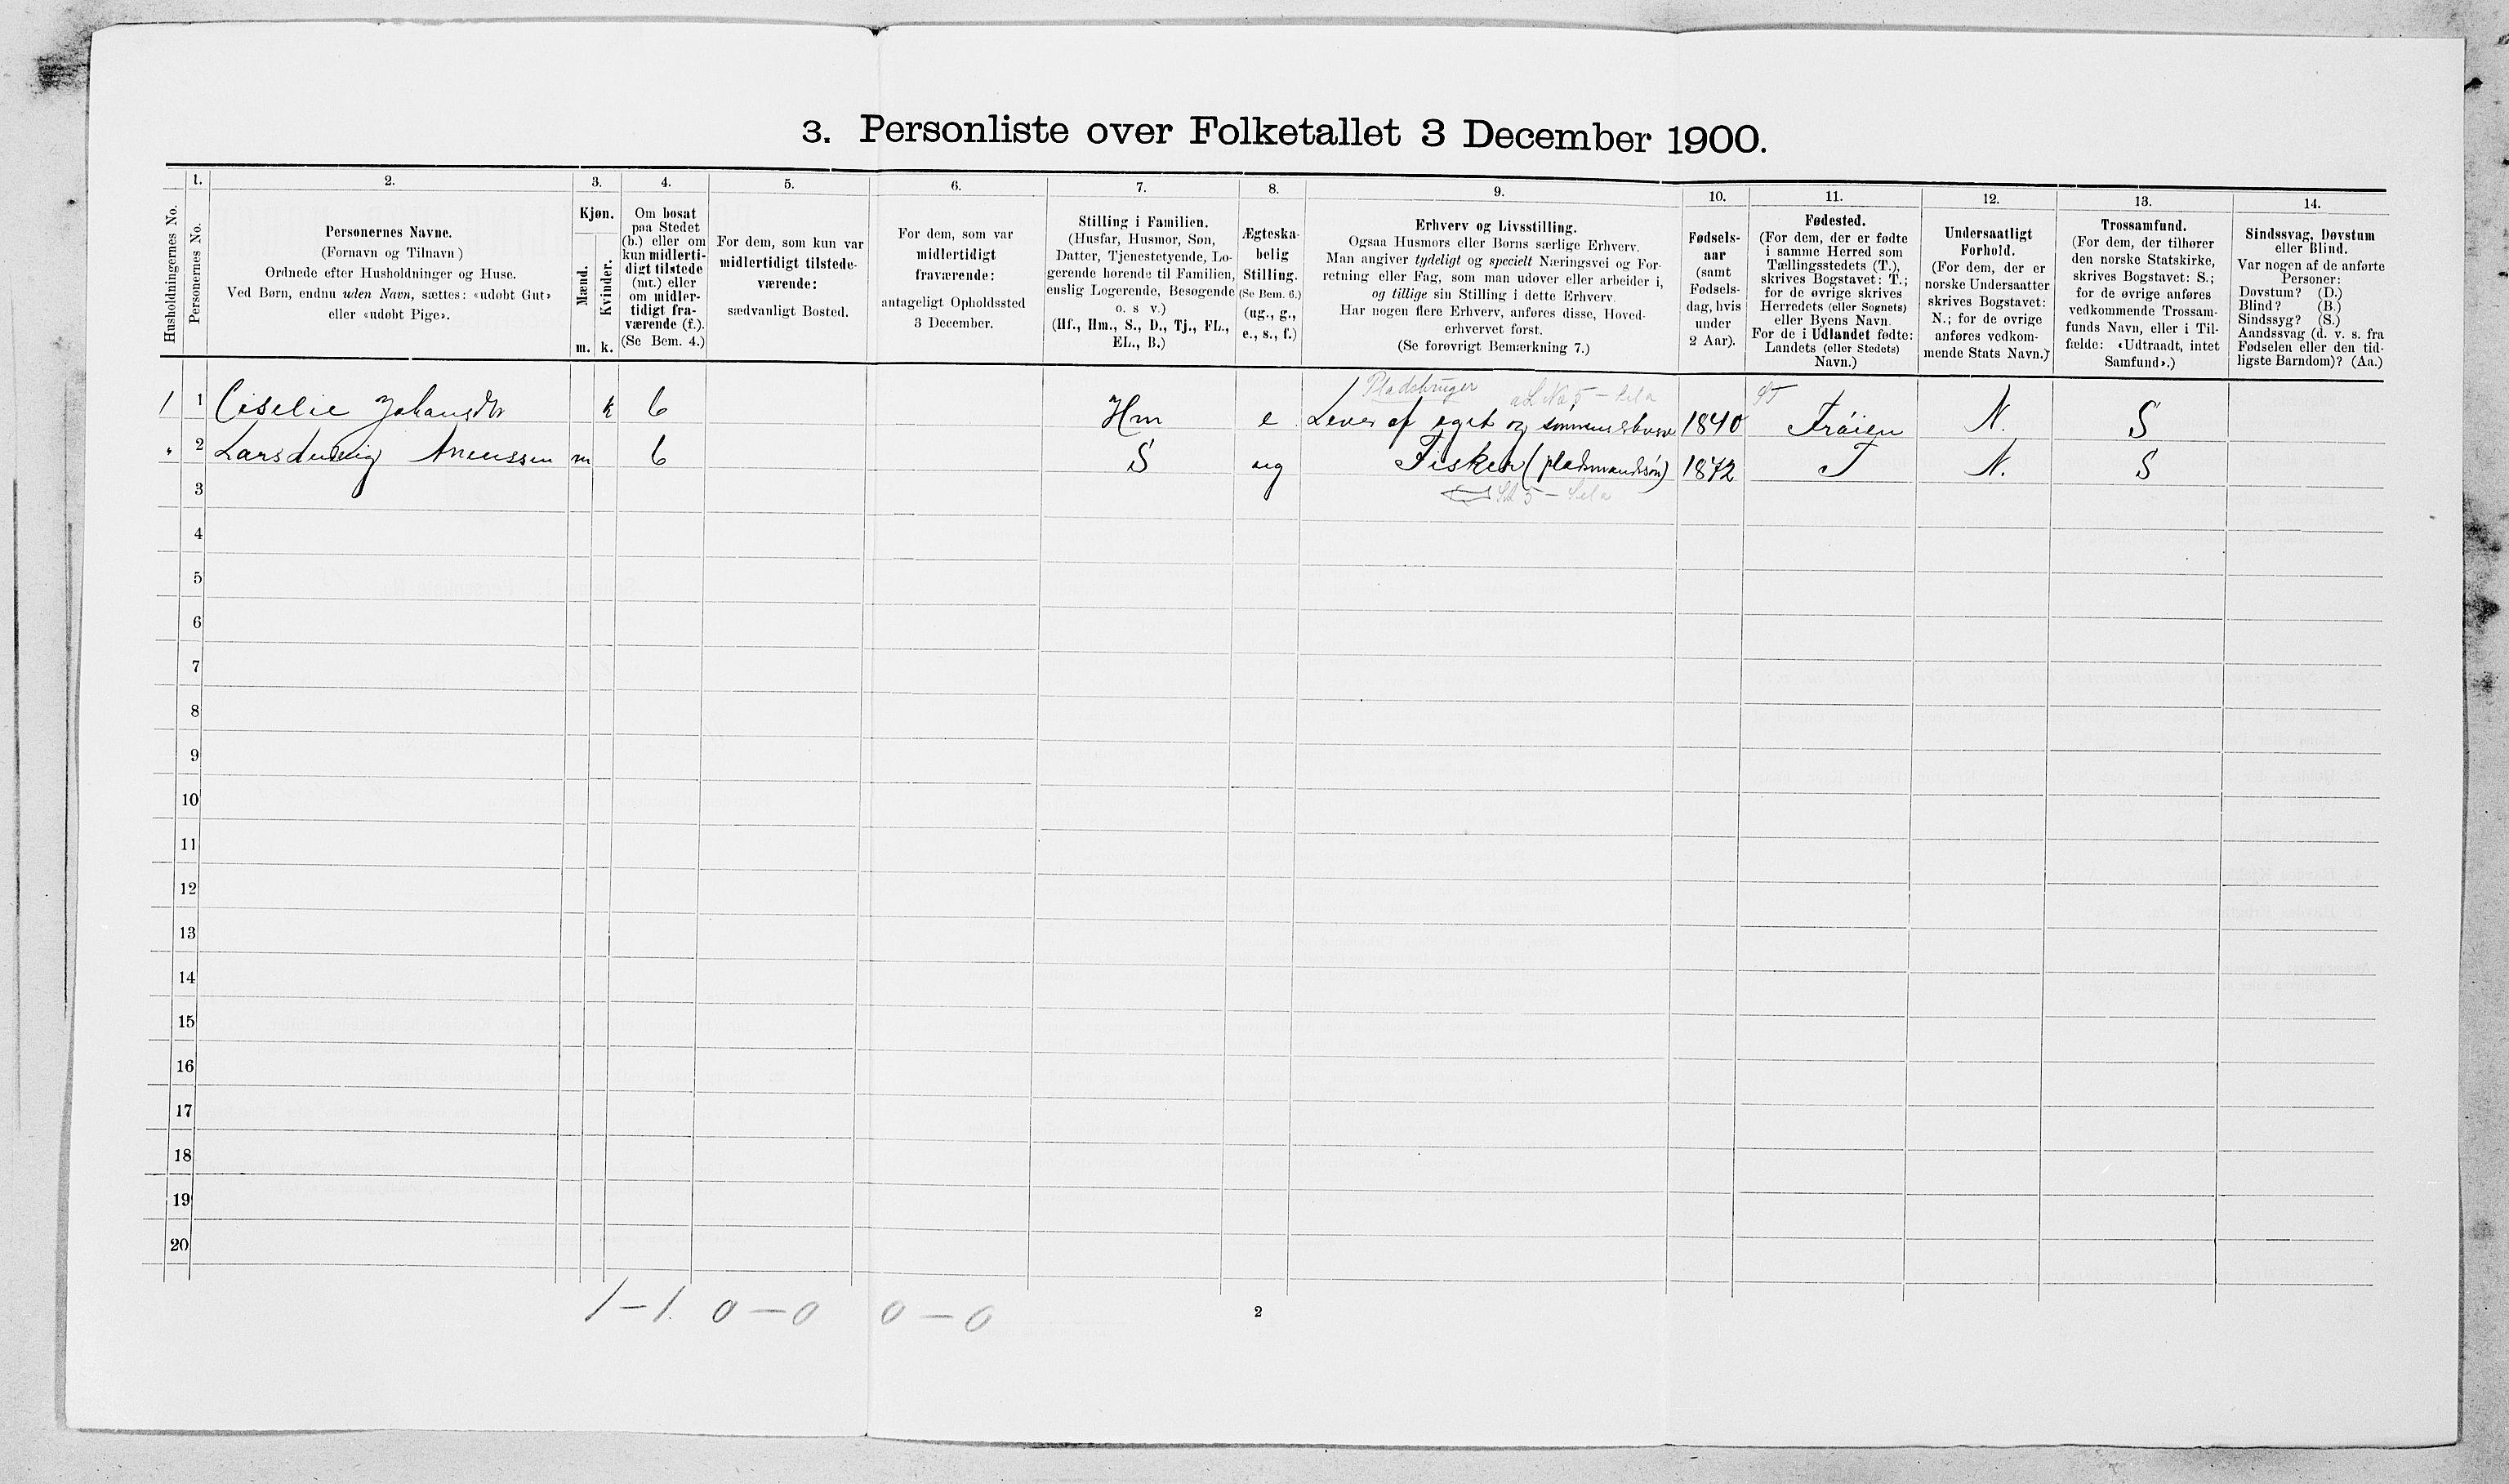 3. Personliste over Folketallet 3 December 1900.
Husholdningernes No.
1.
Personernes No.
2.
Personernes Navne.
(Fornavn og Tilnavn)
Ordnede efter Husholdninger og Huse.
Ved Børn, endnu uden Navn, sættes: «udøbt Gut»
eller «udøbt Pige».
3.
Kjøn.
Mænd.
Kvinder.
m. k.
4.
Om bosat
paa Stedet
(b.) eller om
kun midlerti-
digt tilstede
(mt.) eller
om midler-
tidigt fra-
værende (f.).
(Se Bem. 4.)
5.
For dem, som kun var
midlertidigt tilstede-
værende:
sædvanligt Bosted.
6.
For dem, som var
midlertidigt
fraværende:
antageligt Opholdssted
3 December.
7.
Stilling i Familien.
(Husfar, Husmor, Søn,
Datter, Tjenestetyende, Lo-
gerende hørende til Familien,
enslig Logerende, Besøgende
o. s v.)
(Hf., Hm., S., D., Tj., FL.,
EL., B.)
8.
Ægteska-
belig
Stilling.
(Se Bem. 6.)
(ug., g.,
e., s., f.)
9.
Erhverv og Livsstilling.
Ogsaa Husmors eller Børns særlige Erhverv.
Man angiver tydeligt og specielt Næringsvei og For-
retning eller Fag, som man udøver eller arbeider i,
og tillige sin Stilling i dette Erhverv.
Har nogen flere Erhverv, anføres disse, Hoved-
erhvervet først.
(Se forøvrigt Bemærkning 7.)
10.
Fødsels-
aar
(samt
Fødsels-
dag, hvis
under
2 Aar).
11.
Fødested.
(For dem, der er fødte
i samme Herred som
Tællingsstedets (T.),
skrives Bogstavet: T.;
for de øvrige skrives
Herredets (eller Sognets)
eller Byens Navn.
For de i Udlandet fødte:
Landets (eller Stedets)
Navn.)
12.
Undersaatligt
Forhold.
(For dem, der er
norske Undersaatter
skrives Bogstavet:
N.; for de øvrige
anføres vedkom-
mende Stats Navn.)
13.
Trossamfund.
(For dem, der tilhører
den norske Statskirke,
skrives Bogstavet: S.;
for de øvrige anføres
vedkommende Trossam-
funds Navn, eller i Til-
fælde: «Udtraadt, intet
Samfund».)
14.
Sindssvag, Døvstum
eller Blind.
Var nogen af de anførte
Personer:
Døvstum? (D.)
Blind? (B.)
Sindssyg? (S.)
Aandssvag (d. v. s. fra
Fødselen eller den tid-
ligste Barndom)? (Aa.)
Pladsbruger
1 1 Ciselie Johansdtr k b Hm e Lever af eget og sønnens 1840 Frøien N. S
" 2 Lars Anenssen m b S ug Fisker (pladsmandssøn) 1872 T N. S
3
4
5
6
7
8
9
10
11
12
13
14
15
16
17
18
19
20
1 - 1. 0 - 0 0 - 0
2